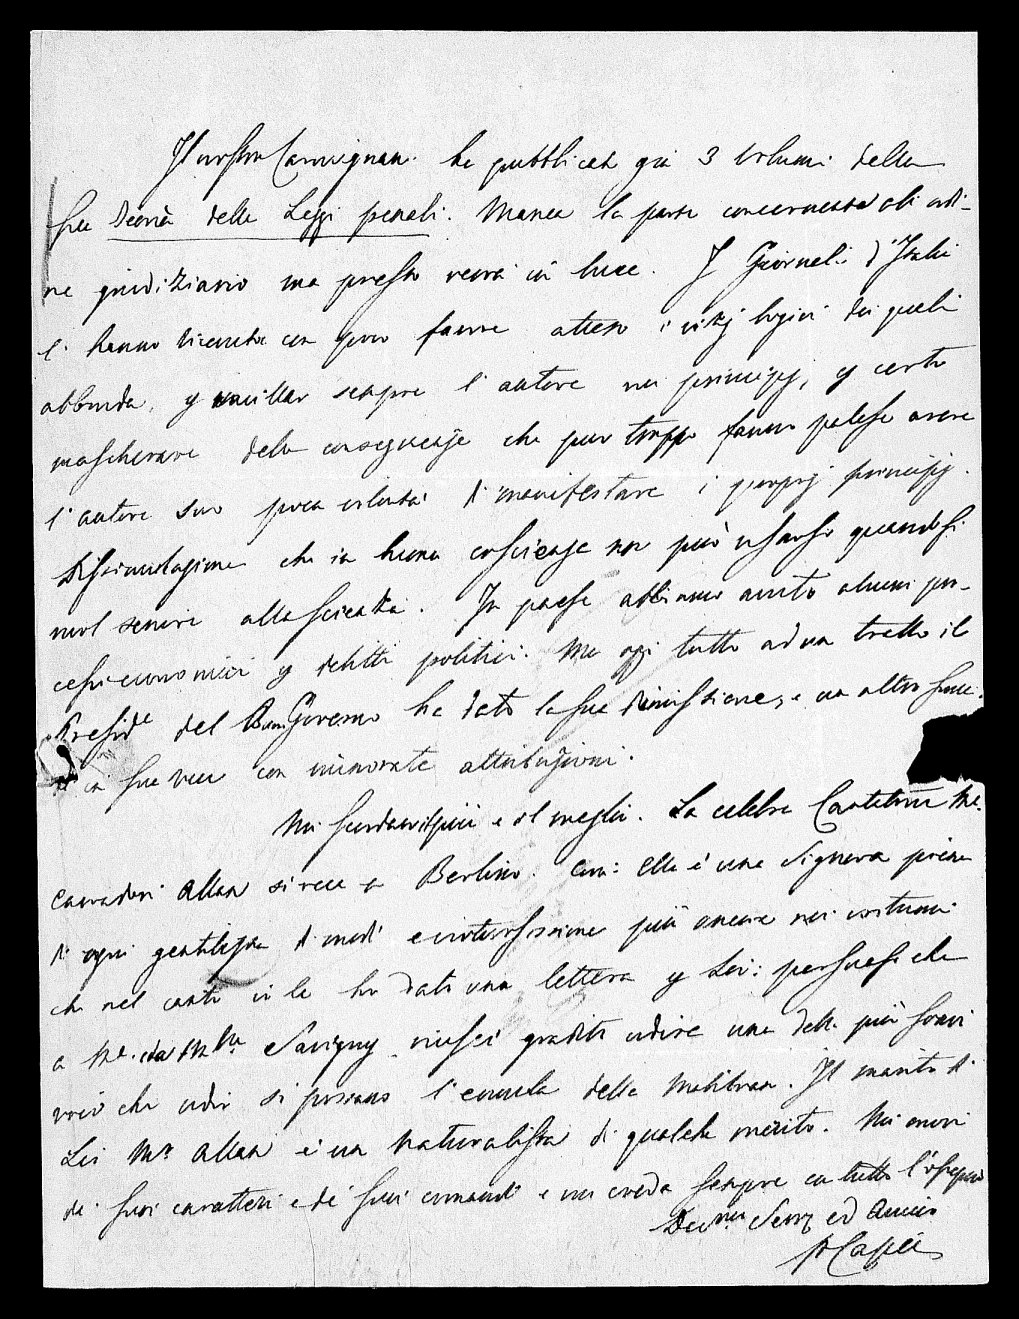 Il nostro Carmignani ha pubblicato già 3 volumi della
sua Teoria delle Leggi penali. Manca la parte concernente all ordi-
ne giudiziario ma presto verrà in luce. I Giornali d'Italia
l' hanno ricevuta con poco favore atteso i vizj logici dei quali
abbonda, p vacillar sempre l' autore nei principj, p certo
mascherare delle conseguenze che pur troppo fanno palese avere
l' autore suo poca volontà di manifestare i proprj principj.
Dissimulazione che in buona coscienza non può usarsi quando si
vuol servire alla scienza. In paese abbiamo avuto alcuni pro-
cessi economici p delitti politici. Ma oggi tutto ad un tratto il
Presid.e del Buon Governo ha dato la sua dimissione, e un altro
in sua vece con minorate attribuzioni.
Mi scordavo il più e il meglio. La celebre Cantatrice M.e
Caradori Allan si reca a Berlino. Ella è una Signora piena
di ogni gentilezza di modi e più ancora nei costumi
che nel canto io le ho dato una lettera p Lei: persuaso che
a M.e Savigny riuscì gradito udire una delle più soavi
voci che udir si possano l' emula della Malibran. Il marito di
Lei M.r Allan è un naturalista di qualche merito. Mi onori
de' suoi caratteri e de' suoi comandi e mi creda sempre con tutto l'ossequio
Dev.mo Serv ed Amico
P Capei